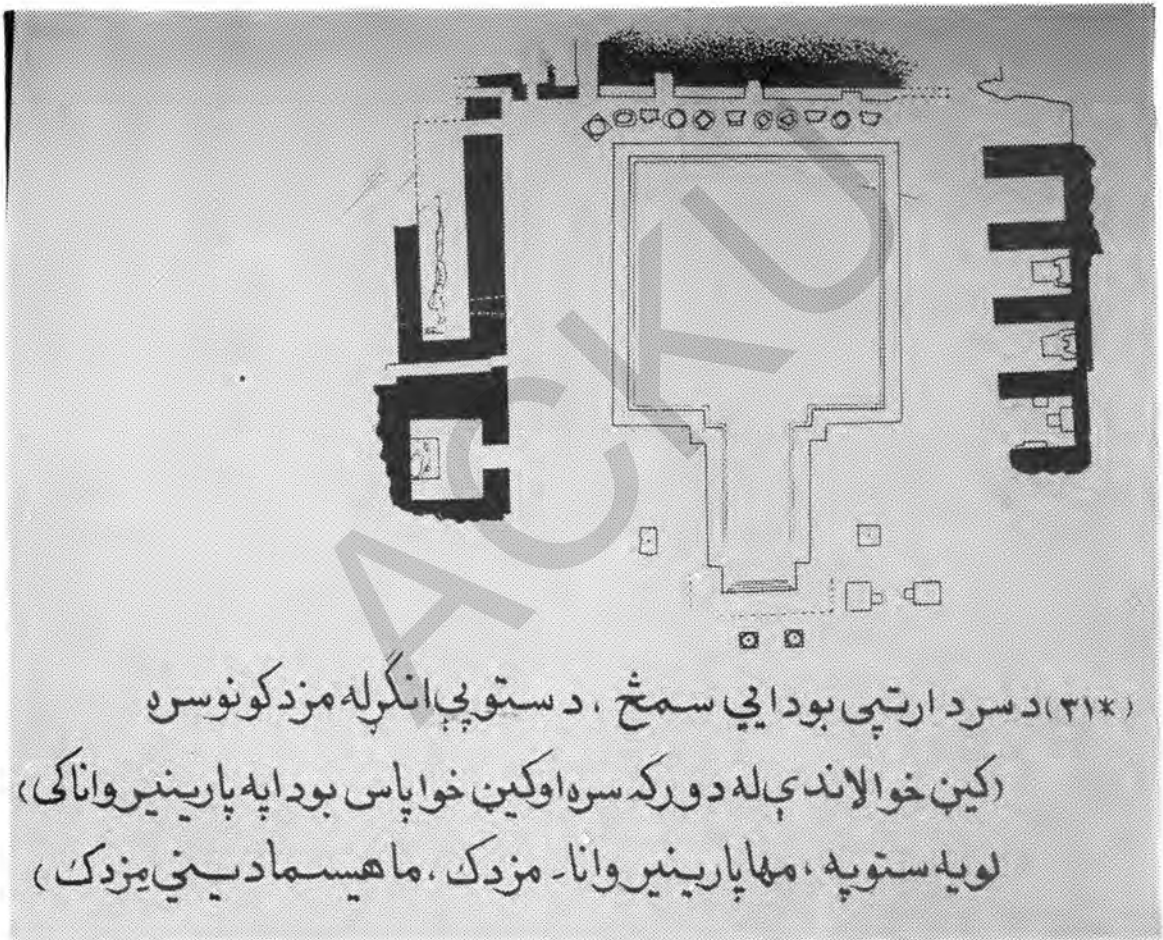 ACKU
(*۳۱) د سردارتپی بودایي سمڅ ، د ستوپې انګړ له مزدکونو سره
(کیڼ خوا لاندې له دورګه سره او کیڼ خوا پاس بودا په پارینیروانا کی)
لویه ستوپه ، مهاپارینیروانا - مزدک ، ماهیسمادیني مزدک )